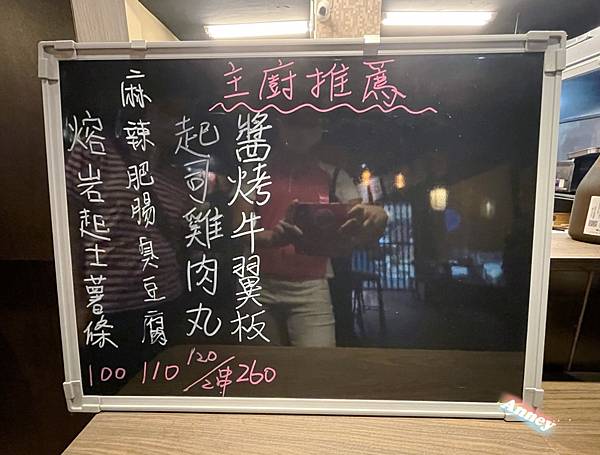 主廚推薦
醬烤牛翼板
起司雞肉丸
麻辣肥腸臭豆腐
熔岩起士薯條
100 110 120/2串 260
Anney